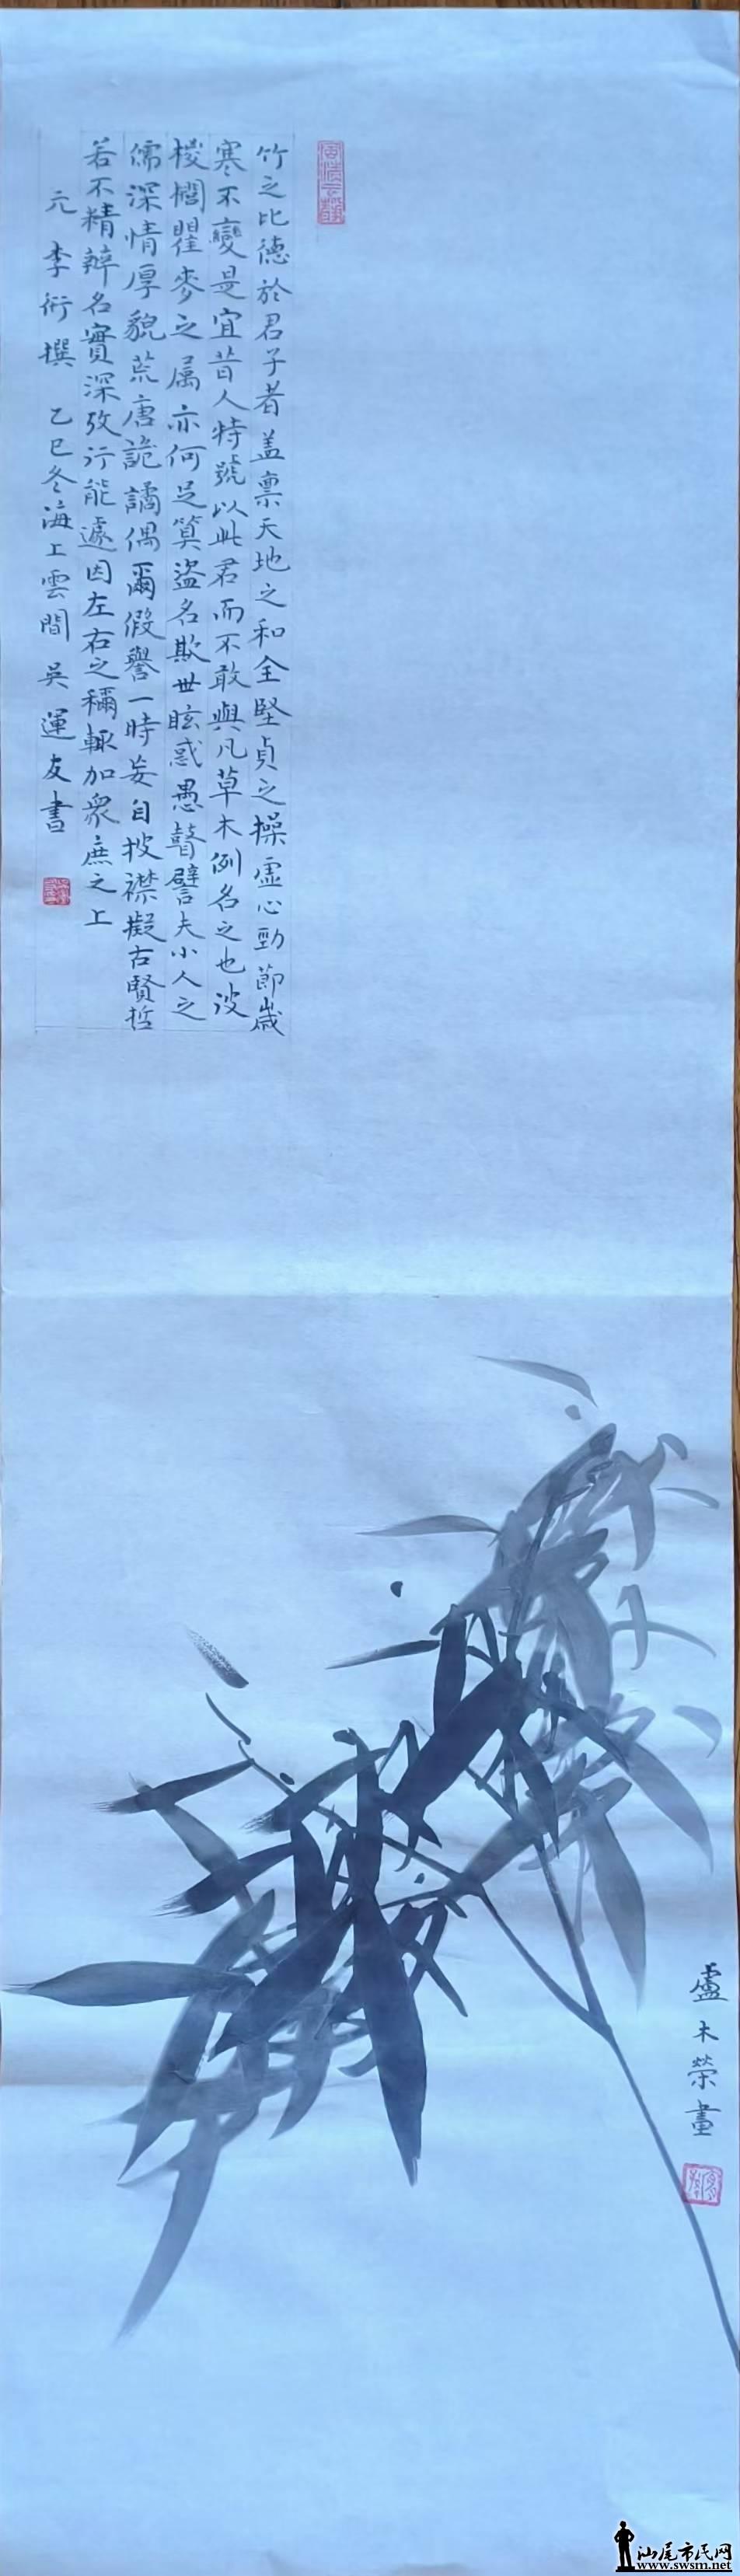 竹之比德於君子者盖禀天地之和全堅貞之操虛心勁節歲
寒不變是宜昔人特號以此君而不敢與凡草木例名之也彼
椶櫚瞿麥之属亦何足筭盜名欺世眩惑愚瞽譬夫小人之
儒深情厚貌荒唐詭譎偶爾假譽一時妄自披襟擬古賢哲
若不精辨名實深攷行能遽因左右之稱輒加衆庶之上
元 李衎撰 乙巳冬海上雲間 吳運友書
盧木榮畫
汕尾市民网
www.swsm.net